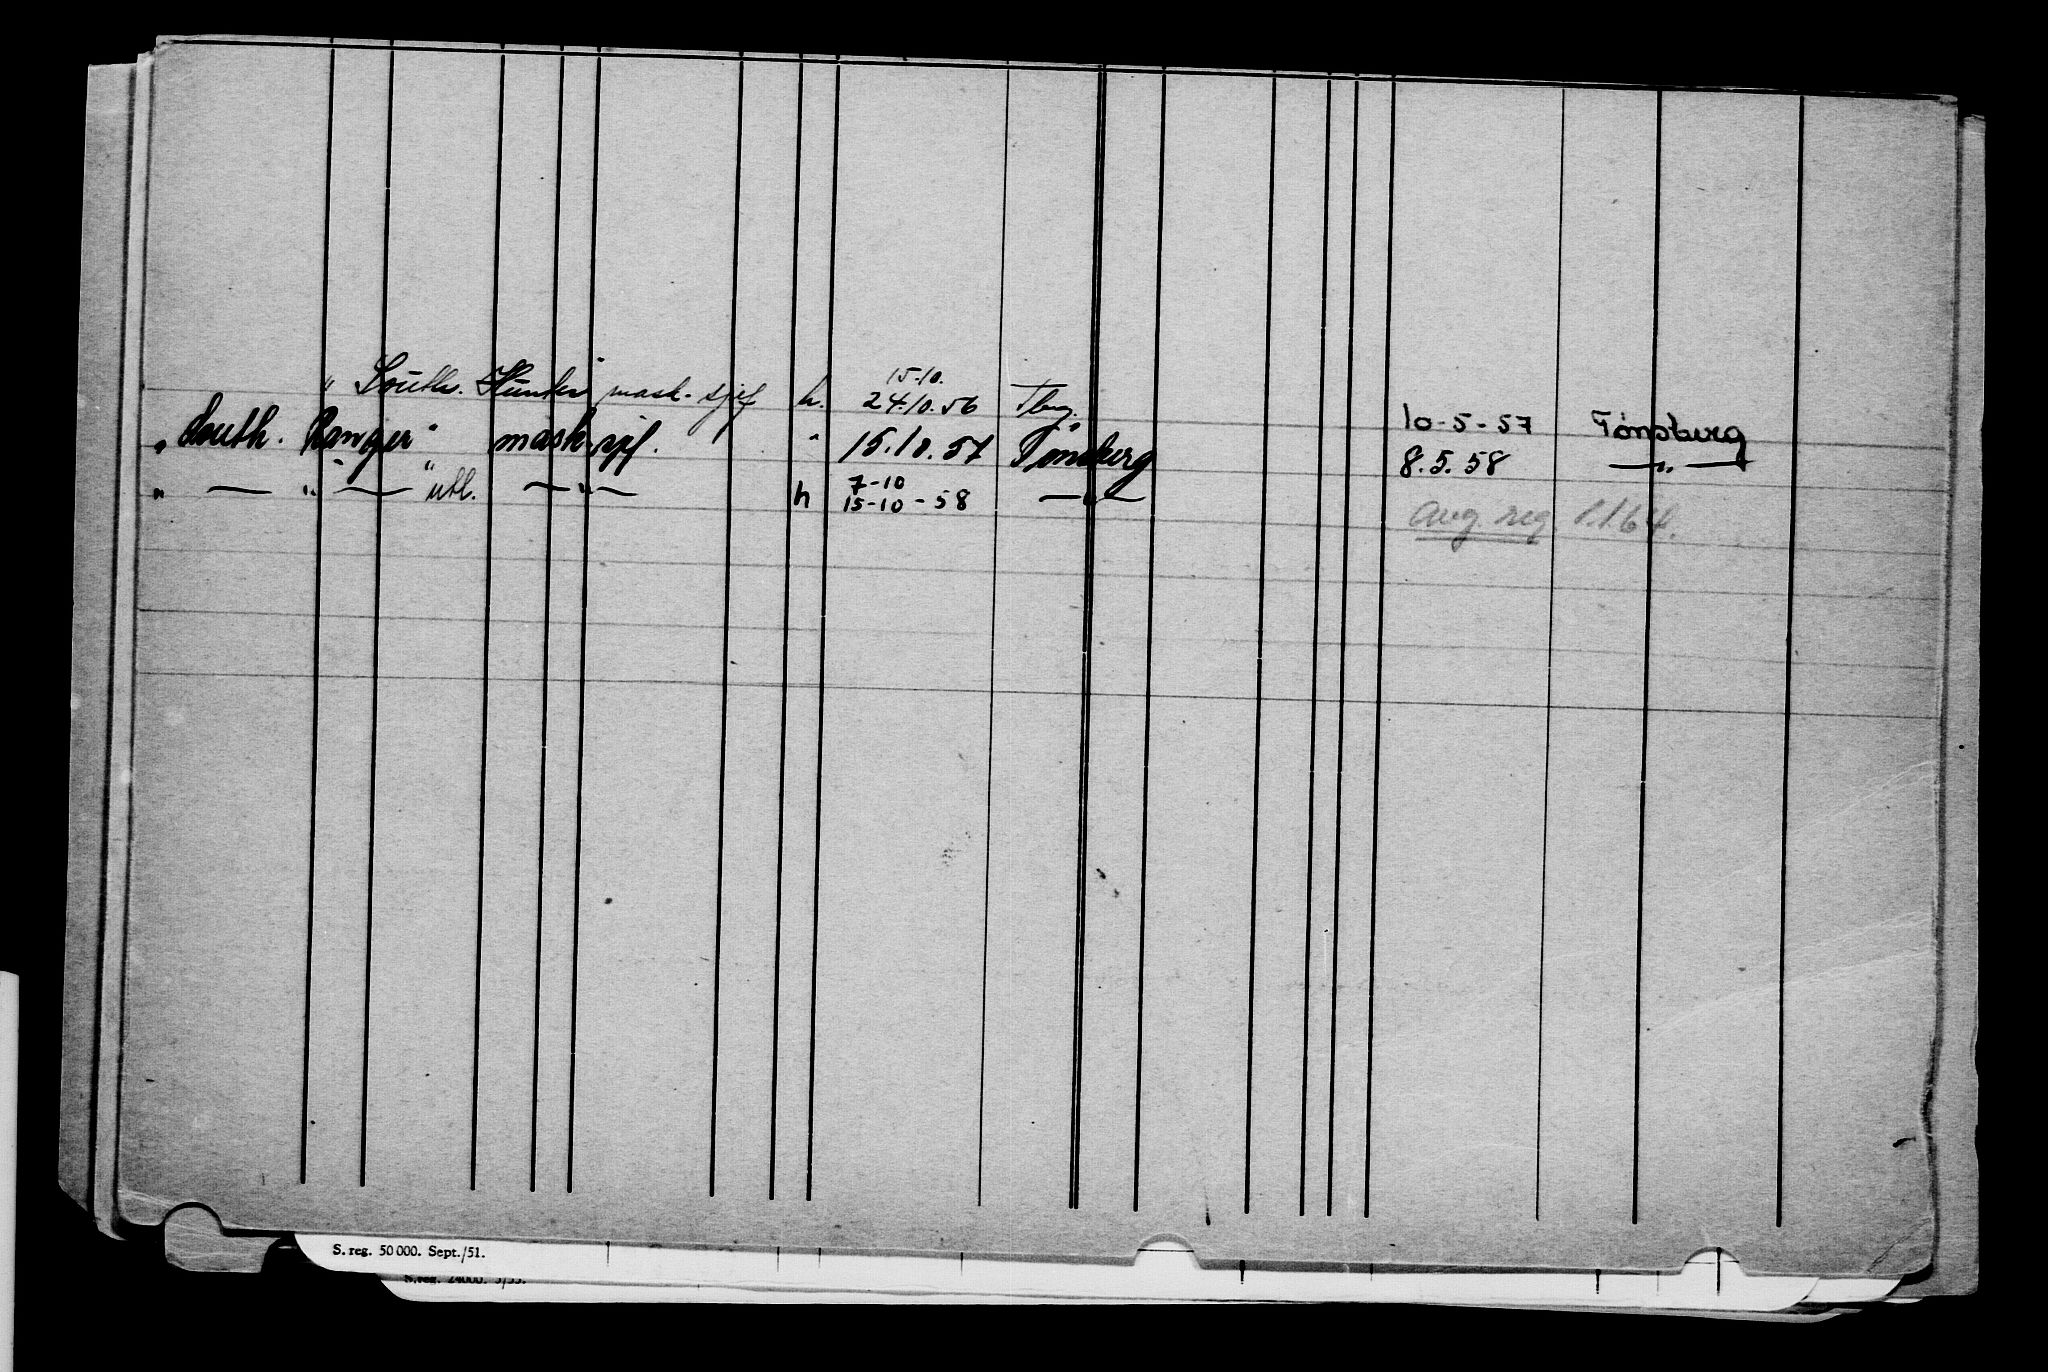 " South. Hunter" mask. sjef h. 15.10. 24.10.56 Tbg. 10-5-57 Tønsberg
" South. Ranger" mask.sjf. " 15.10.57 Tønsberg 8.5.58 — " —
" — " — " utl. — " — h 7-10 15-10-58 — " —
avg. reg. 1.1.64.
S. reg. 50 000. Sept./51.
S.reg. 24000. 5/55.